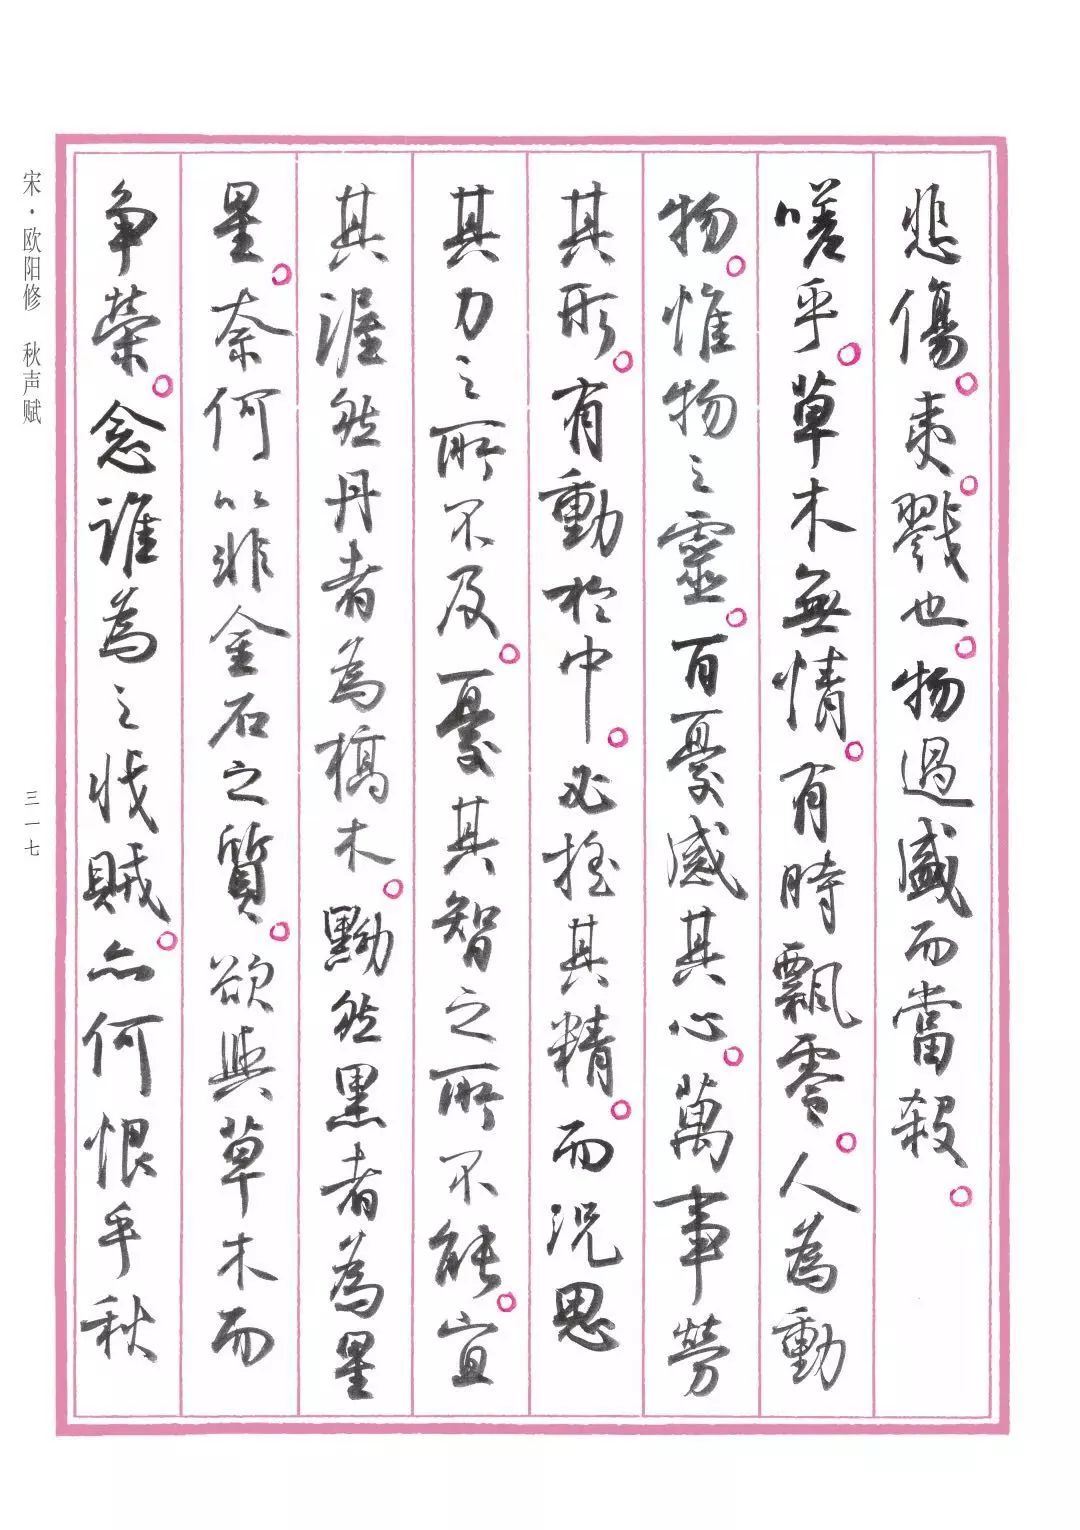 悲傷。夷。戮也。物過盛而當殺。
嗟乎。草木無情。有時飄零。人為動
物。惟物之靈。百憂感其心。萬事勞
其形。有動於中。必搖其精。而況思
其力之所不及。憂其智之所不能。宜
其渥然丹者為槁木。黝然黑者為星
星。奈何以非金石之質。欲與草木而
争榮。念誰為之戕賊。亦何恨乎秋
宋·欧阳修 秋声赋
三一七